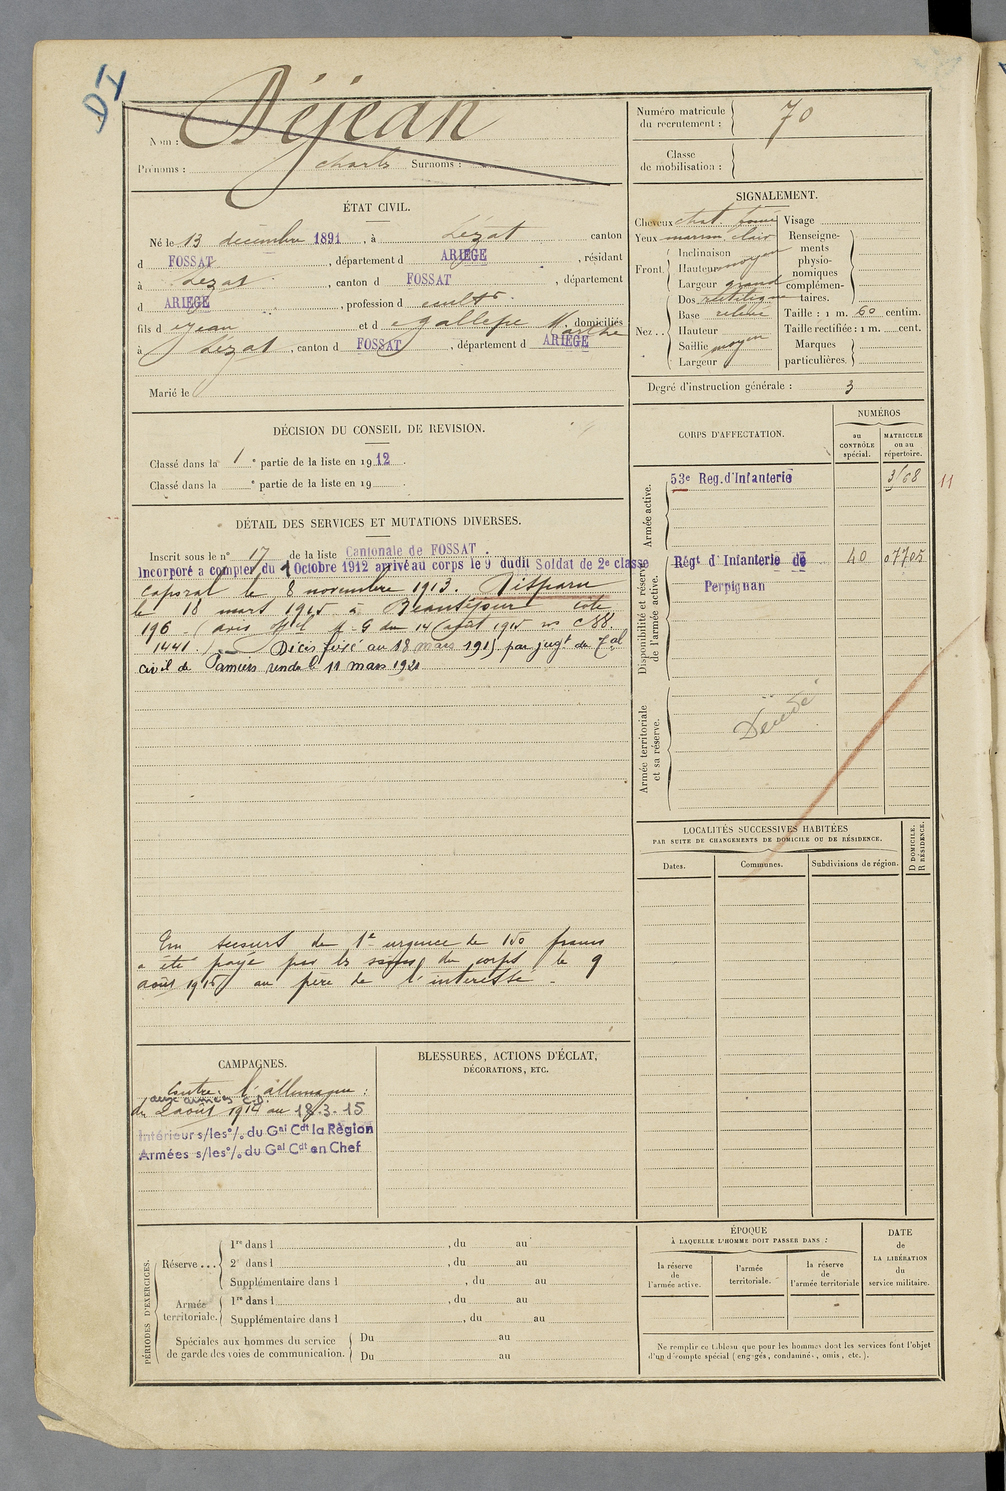 DI
Nom : Déjean
Prénoms : Charles Surnoms :
Numéro matricule du recrutement : 70
Classe de mobilisation :
ÉTAT CIVIL.
Né le 13 décembre 1891, à Lézat canton
d FOSSAT, département d ARIEGE, résidant
à Lézat, canton d FOSSAT, département
d ARIEGE, profession d cultr.
fils d Jean et d Gallepe Marthe, domiciliés
à Lézat, canton d FOSSAT, département d ARIEGE
Marié le
SIGNALEMENT.
Cheveux chat. foncé Visage
Yeux marron clair Renseignements physionomiques complémentaires.
Front. Inclinaison
Hauteur moyen
Largeur grand
Nez... Dos rectiligne
Base relevé Taille : 1 m. 60 centim.
Hauteur Taille rectifiée : 1 m. cent.
Saillie moyen Marques particulières.
Largeur
Degré d'instruction générale : 3
DÉCISION DU CONSEIL DE REVISION.
Classé dans la 1e partie de la liste en 1912.
Classé dans la e partie de la liste en 19
CORPS D'AFFECTATION.
NUMÉROS
au CONTRÔLE spécial.
MATRICULE ou au répertoire.
Armée active.
53e Reg. d'Infanterie 3168
11
Disponibilité et réserve de l'armée active.
Régt d'Infanterie de 40 07705
Perpignan
Armée territoriale et sa réserve.
Décédé
DÉTAIL DES SERVICES ET MUTATIONS DIVERSES.
Inscrit sous le n° 17 de la liste Cantonale de FOSSAT.
Incorporé a compter du 1 Octobre 1912 arrivé au corps le 9 dudit Soldat de 2e classe
Caporal le 8 novembre 1913. Disparu
le 18 mars 1915 à Beauséjour cote
196 (avis Mel M.G du 14 août 1915 no C88.
1441.) Décès fixé au 18 mars 1915 par jugt du Tal
civil de Pamiers rendu le 11 mars 1921
Un secours de 1e urgence de 150 francs
a été payé par les soins du corps le 9
août 1915 au père de l'intéressé.
LOCALITÉS SUCCESSIVES HABITÉES
PAR SUITE DE CHANGEMENTS DE DOMICILE OU DE RÉSIDENCE.
Dates. Communes. Subdivisions de région. D DOMICILE. R RÉSIDENCE.
CAMPAGNES.
Contre l'allemagne :
aux armées C.D.
du 2 août 1914 au 18.3.15
Intérieur s/les°/o du Gal Cdt la Région
Armées s/les°/o du Gal Cdt en Chef
BLESSURES, ACTIONS D'ÉCLAT,
DÉCORATIONS, ETC.
PÉRIODES D'EXERCICES.
Réserve... 1re dans l , du au
2e dans l , du au
Supplémentaire dans l , du au
Armée territoriale. 1re dans l , du au
Supplémentaire dans l , du au
Spéciales aux hommes du service de garde des voies de communication. Du au
Du au
ÉPOQUE
À LAQUELLE L'HOMME DOIT PASSER DANS :
la réserve de l'armée active.
l'armée territoriale.
la réserve de l'armée territoriale
DATE de LA LIBÉRATION du service militaire.
Ne remplir ce tableau que pour les hommes dont les services font l'objet
d'un décompte spécial (engagés, condamnés, omis, etc.).